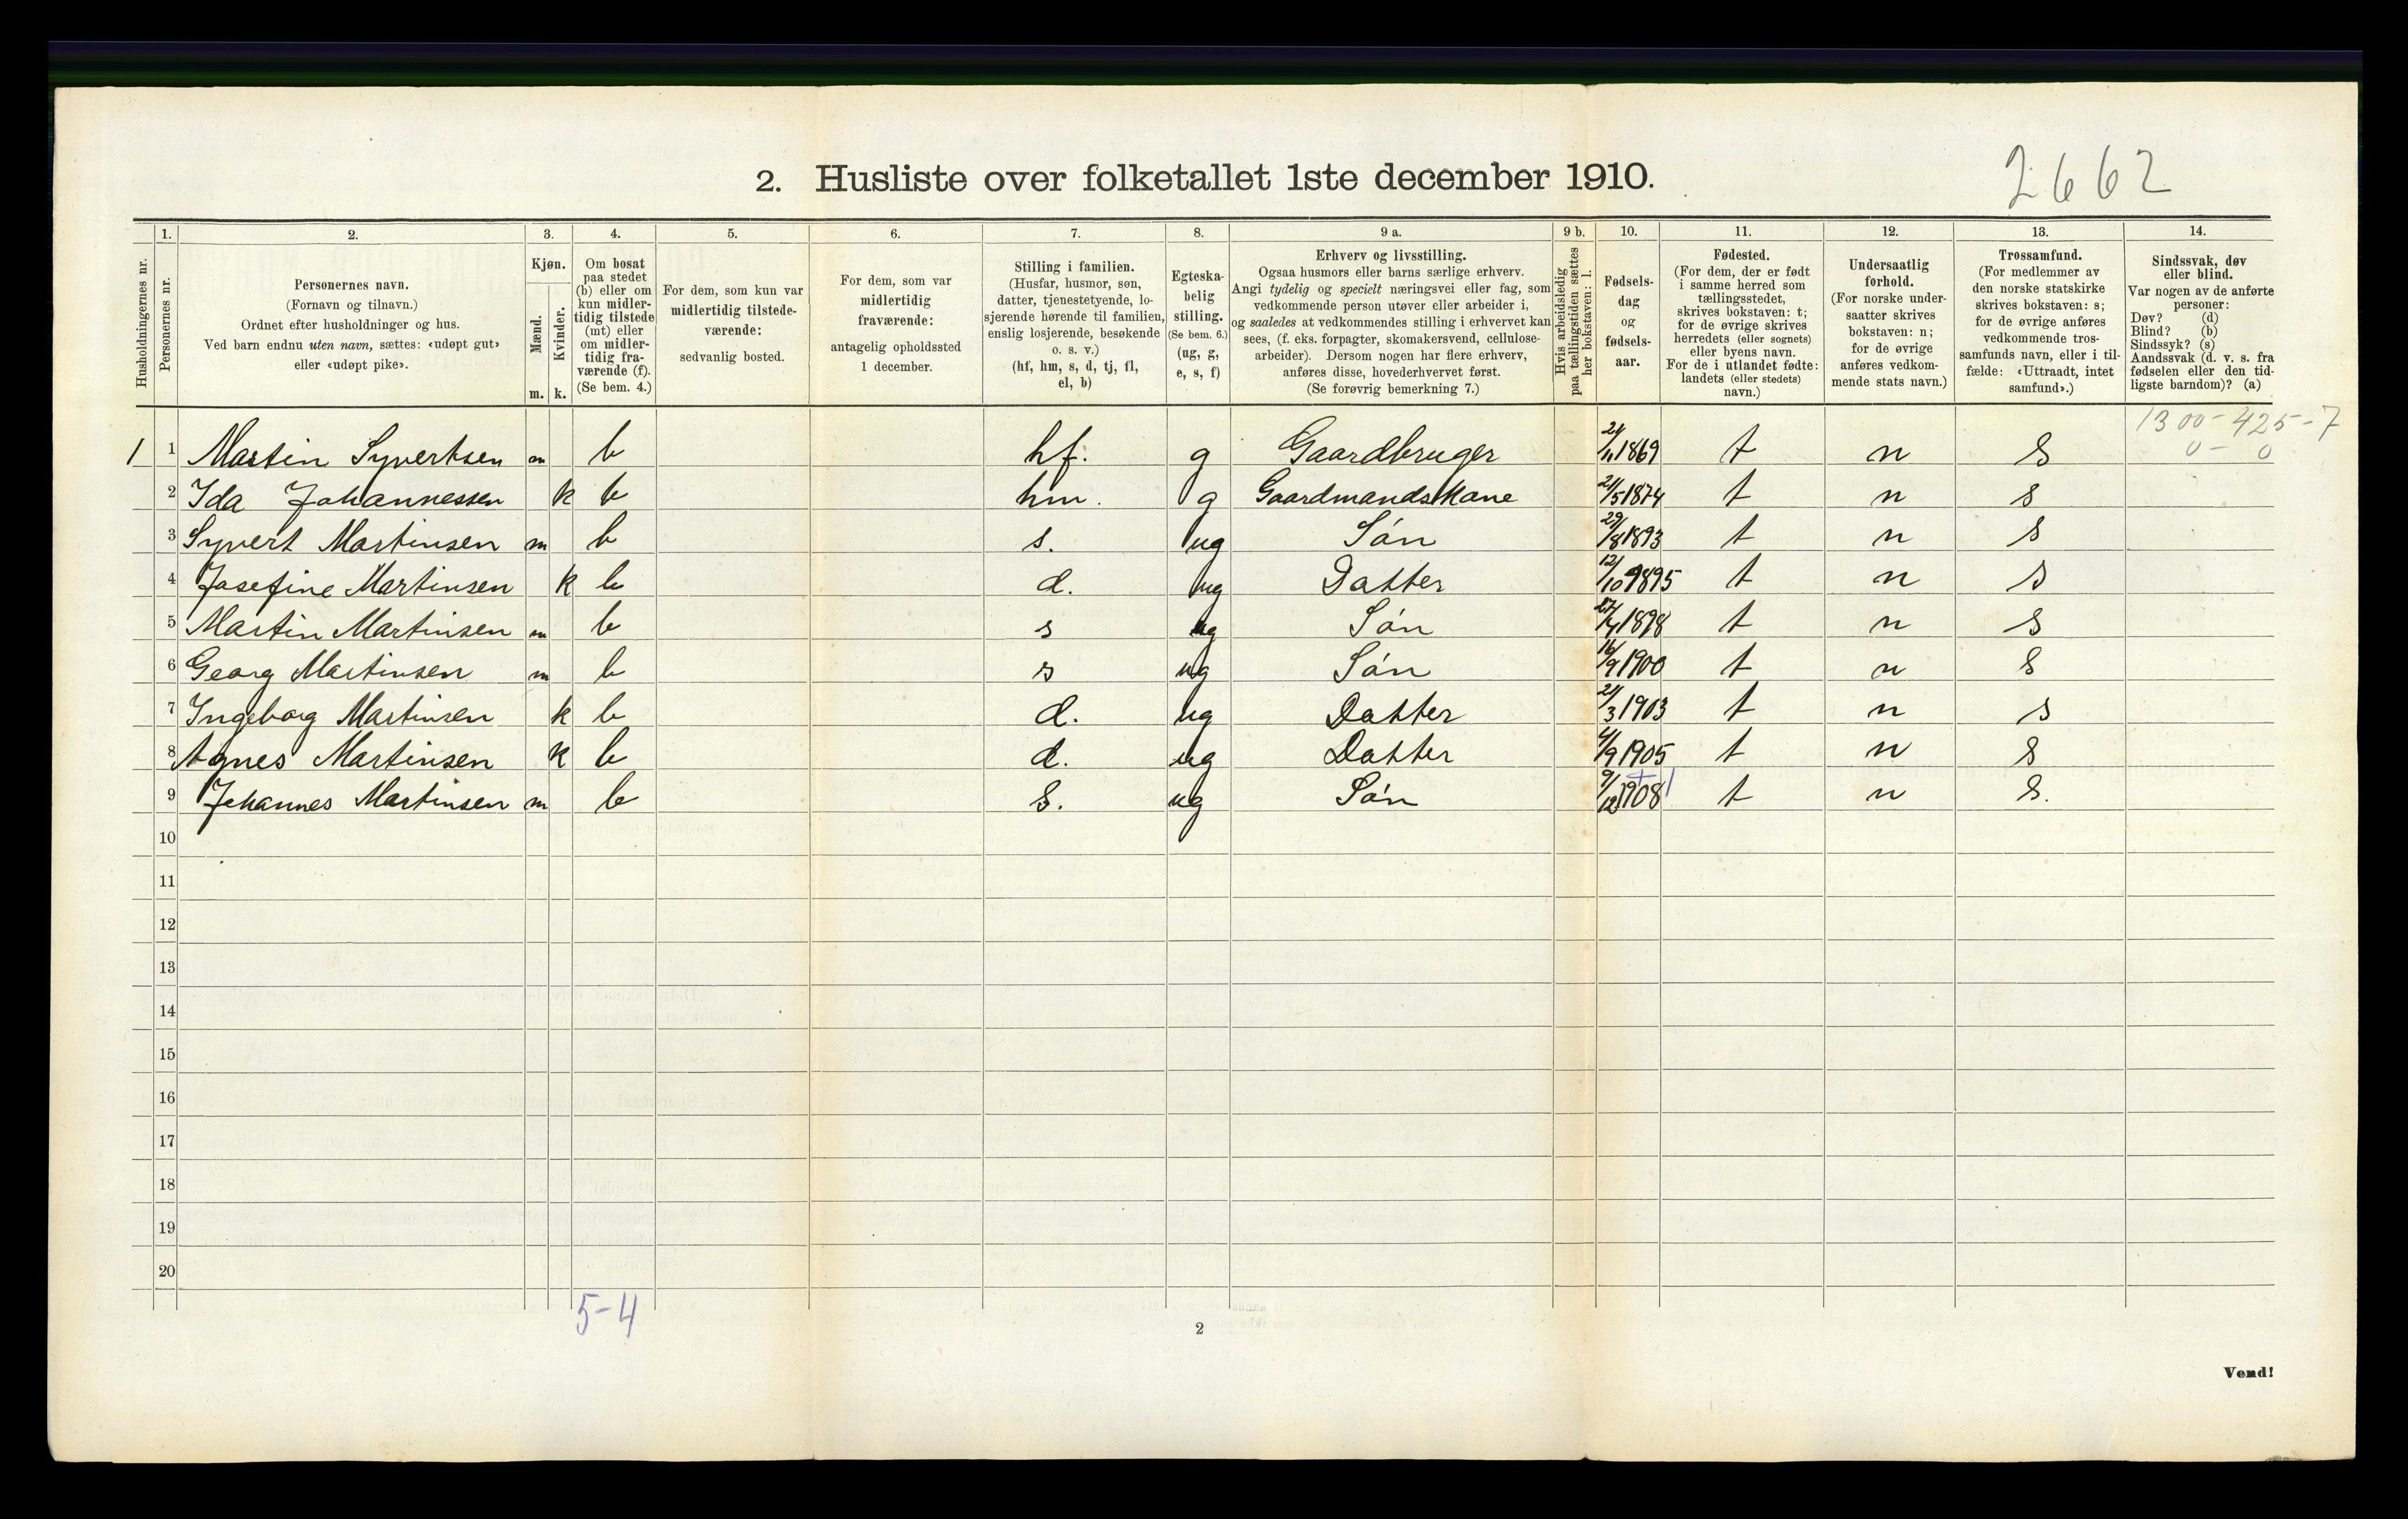 2. Husliste over folketallet 1ste december 1910.
2662
Husholdningernes nr.
1. Personernes nr.
2. Personernes navn.
(Fornavn og tilnavn.)
Ordnet efter husholdninger og hus.
Ved barn endnu uten navn, sættes: «udøpt gut»
eller «udøpt pike».
3. Kjøn.
Mænd. Kvinder.
m. k.
4. Om bosat
paa stedet
(b) eller om
kun midler-
tidig tilstede
(mt) eller
om midler-
tidig fra-
værende (f).
(Se bem. 4.)
5. For dem, som kun var
midlertidig tilstede-
værende:
sedvanlig bosted.
6. For dem, som var
midlertidig
fraværende:
antagelig opholdssted
1 december.
7. Stilling i familien.
(Husfar, husmor, søn,
datter, tjenestetyende, lo-
sjerende hørende til familien,
enslig losjerende, besøkende
o. s. v.)
(hf, hm, s, d, tj, fl,
el, b)
8. Egteska-
belig
stilling.
(Se bem. 6.)
(ug, g,
e, s, f)
9 a. Erhverv og livsstilling.
Ogsaa husmors eller barns særlige erhverv.
Angi tydelig og specielt næringsvei eller fag, som
vedkommende person utøver eller arbeider i,
og saaledes at vedkommendes stilling i erhvervet kan
sees, (f. eks. forpagter, skomakersvend, cellulose-
arbeider). Dersom nogen har flere erhverv,
anføres disse, hovederhvervet først.
(Se forøvrig bemerkning 7.)
9 b. Hvis arbeidsledig
paa tællingstiden sættes
her bokstaven: l.
10. Fødsels-
dag
og
fødsels-
aar.
11. Fødested.
(For dem, der er født
i samme herred som
tællingsstedet,
skrives bokstaven: t;
for de øvrige skrives
herredets (eller sognets)
eller byens navn.
For de i utlandet fødte:
landets (eller stedets)
navn.)
12. Undersaatlig
forhold.
(For norske under-
saatter skrives
bokstaven: n;
for de øvrige
anføres vedkom-
mende stats navn.)
13. Trossamfund.
(For medlemmer av
den norske statskirke
skrives bokstaven: s;
for de øvrige anføres
vedkommende tros-
samfunds navn, eller i til-
fælde: «Uttraadt, intet
samfund».)
14. Sindssvak, døv
eller blind.
Var nogen av de anførte
personer:
Døv? (d)
Blind? (b)
Sindssyk? (s)
Aandssvak (d. v. s. fra
fødselen eller den tid-
ligste barndom)? (a)
1300-425-7
0- 0
1 1 Martin Syvertsen m b hf. g Gaardbruger 1869 t n s
2 Ida Johannessen k b hm. g Gaardmandskone 21/5 1874 t n s
3 Syvert Martinsen m b s. ug Són 29/8 1893 t n s
4 Josefine Martinsen k b d. ug Datter 12/10 1895 t n s
5 Martin Martinsen m b s ug Són 1898 t n s
6 Georg Martinsen m b s ug Són 16/9 1900 t n s
7 Ingeborg Martinsen k b d. ug Datter 21/3 1903 t n s
8 Agnes Martinsen k b d. ug Datter 4/9 1905 t n s
9 Johannes Martinsen m b s. ug Són 9/12 1908 t n s.
10
11
12
13
14
15
16
17
18
19
20
5-4
2
Vend!